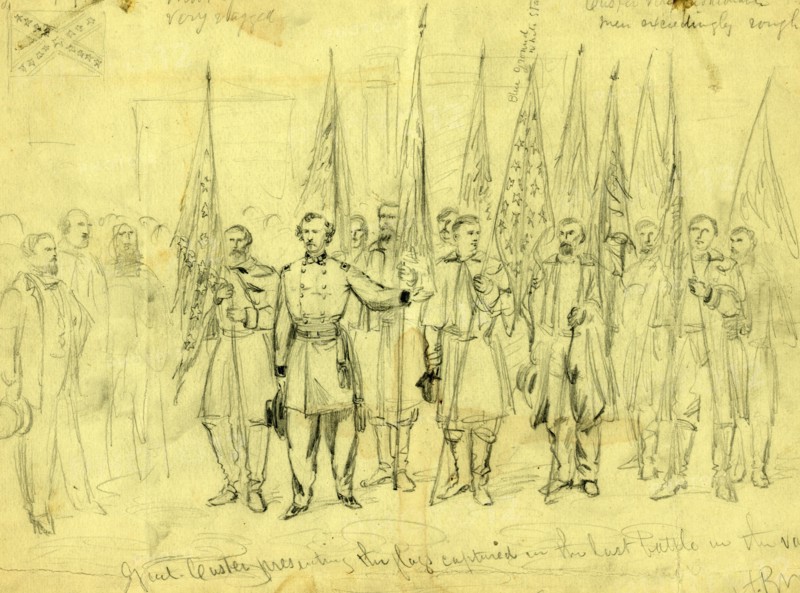 Very ragged
men exceedingly rough
Blue ground
White Sta
Genl. Custer presenting the flags captured in the last battle in the va